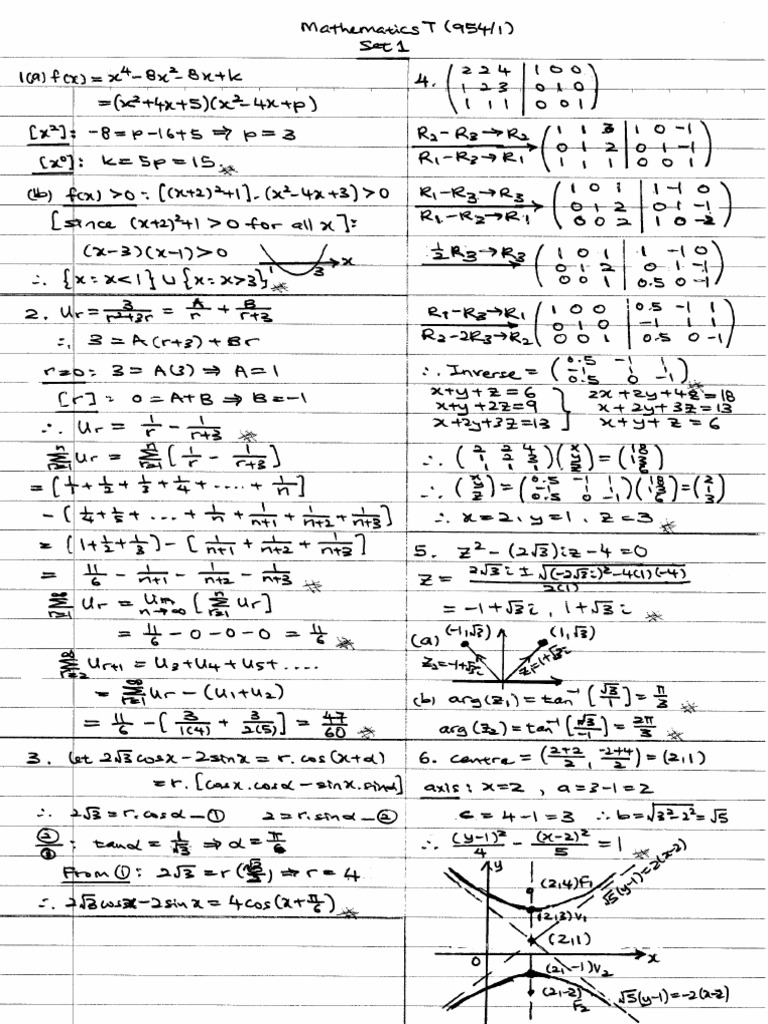 Mathematics T (954/1)
Set 1
1(a) f(x) = x⁴ – 8x² – 8x + k
= (x² + 4x + 5)(x² – 4x + p)
[x²]: –8 = p – 16 + 5 ⇒ p = 3
[x⁰]: k = 5p = 15.
(b) f(x) > 0 : [(x+2)² + 1].(x² – 4x + 3) > 0
[since (x+2)² + 1 > 0 for all x]:
(x–3)(x–1) > 0
1 3 x
∴ {x: x < 1} ∪ {x: x > 3}
2. Ur = 3/(r²+3r) = A/r + B/(r+3)
∴ 3 = A(r+3) + Br
r=0: 3 = A(3) ⇒ A = 1
[r]: 0 = A + B ⇒ B = –1
∴ Ur = 1/r – 1/(r+3)
∑ⁿᵣ₌₁ Ur = ∑ⁿᵣ₌₁ [1/r – 1/(r+3)]
= [1/1 + 1/2 + 1/3 + 1/4 + ..... + 1/n]
– [1/4 + 1/5 + ... + 1/n + 1/(n+1) + 1/(n+2) + 1/(n+3)]
= (1 + 1/2 + 1/3) – [1/(n+1) + 1/(n+2) + 1/(n+3)]
= 11/6 – 1/(n+1) – 1/(n+2) – 1/(n+3)
∑^∞ᵣ₌₁ Ur = lim n→∞ [∑ⁿᵣ₌₁ Ur]
= 11/6 – 0 – 0 – 0 = 11/6
∑^∞ᵣ₌₂ Ur+1 = U3 + U4 + U5 + .....
= ∑^∞ᵣ₌₁ Ur – (U1 + U2)
= 11/6 – [3/1(4) + 3/2(5)] = 47/60
3. Let 2√3 cosx – 2 sinx = r.cos(x+α)
= r.[cosx.cosα – sinx.sinα]
∴ 2√3 = r.cosα – ① 2 = r.sinα – ②
②/①: tanα = 1/√3 ⇒ α = π/6
From ①: 2√3 = r(√3/2) ⇒ r = 4
∴ 2√3 cosx – 2 sinx = 4 cos(x + π/6)
4. (2 2 4 | 1 0 0
1 2 3 | 0 1 0
1 1 1 | 0 0 1)
R2–R3→R2
R1–R3→R1
(1 1 3 | 1 0 –1
0 1 2 | 0 1 –1
1 1 1 | 0 0 1)
R1–R3→R3
R1–R2→R1
(1 0 1 | 1 –1 0
0 1 2 | 0 1 –1
0 0 2 | 1 0 –2)
½R3→R3
(1 0 1 | 1 –1 0
0 1 2 | 0 1 –1
0 0 1 | 0.5 0 –1)
R1–R3→R1
R2–2R3→R2
(1 0 0 | 0.5 –1 1
0 1 0 | –1 1 1
0 0 1 | 0.5 0 –1)
∴ Inverse = (0.5 –1 1
–1 1 1
0.5 0 –1)
x+y+z=6 2x+2y+4z=18
x+y+2z=9 } x+2y+3z=13
x+2y+3z=13 x+y+z=6
∴ (2 2 4
1 2 3
1 1 1)(x
y
z) = (18
13
6)
∴ (x
y
z) = (0.5 –1 1
–1 1 1
0.5 0 –1)(18
13
6) = (2
1
3)
∴ x = 2, y = 1, z = 3
5. z² – (2√3)iz – 4 = 0
z = (2√3i ± √((–2√3i)² – 4(1)(–4)))/2(1)
= –1+√3i, 1+√3i
(a) (–1,√3) (1,√3)
z2=–1+√3i z1=1+√3i
(b) arg(z1) = tan⁻¹[√3/1] = π/3
arg(z2) = tan⁻¹[√3/–1] = 2π/3
6. centre = ((2+2)/2, (–2+4)/2) = (2,1)
axis: x=2, a = 3–1 = 2
c = 4–1 = 3 ∴ b = √(3²–2²) = √5
∴ (y–1)²/4 – (x–2)²/5 = 1
y
(2,4)F1
√5(y–1)=2(x–2)
(2,3)V1
(2,1)
0 x
(2,–1)V2
(2,–2)
F2
√5(y–1)=–2(x–2)